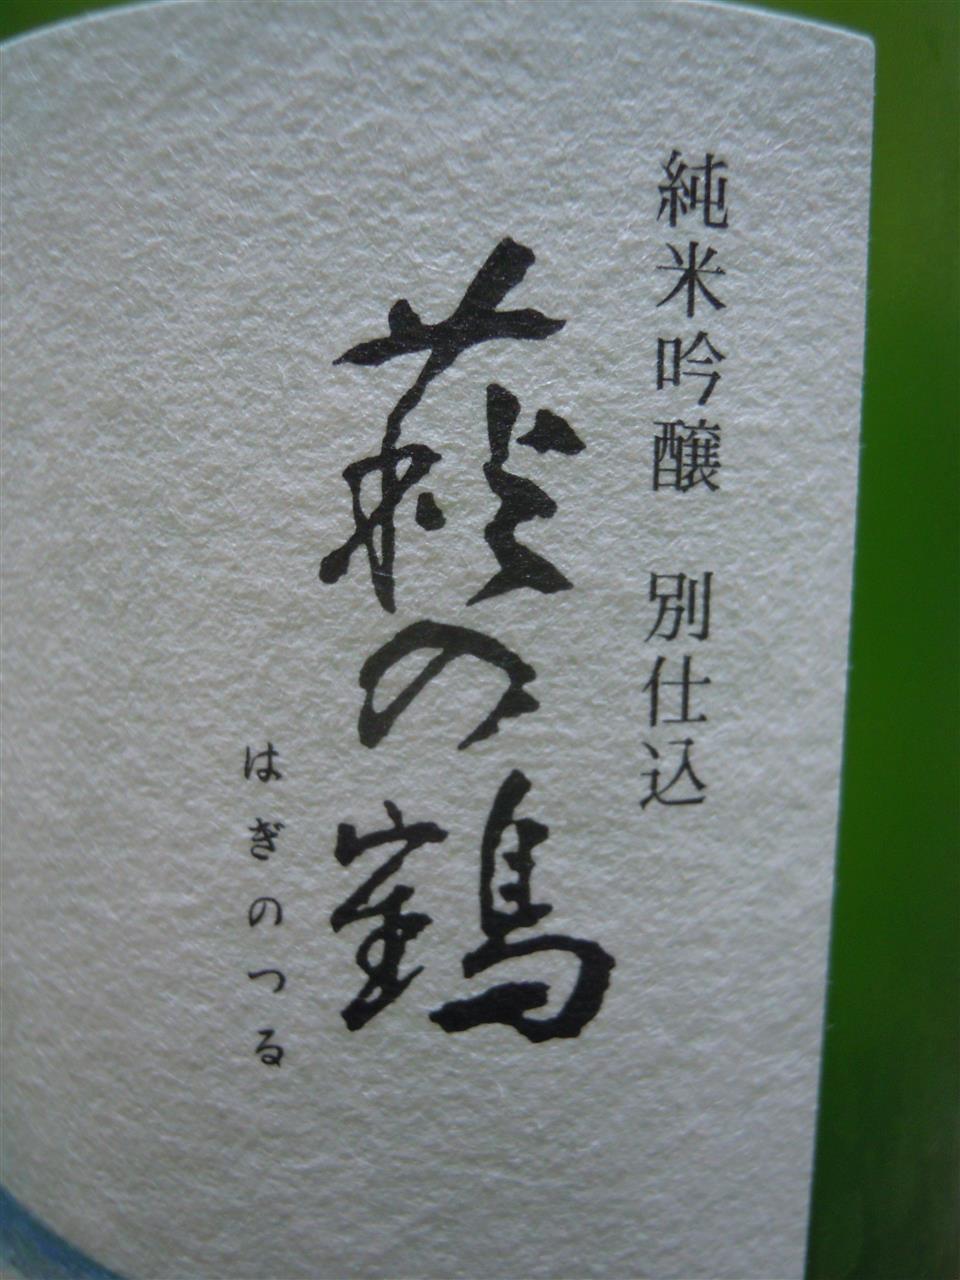 純米吟醸 別仕込
萩の鶴
はぎのつる